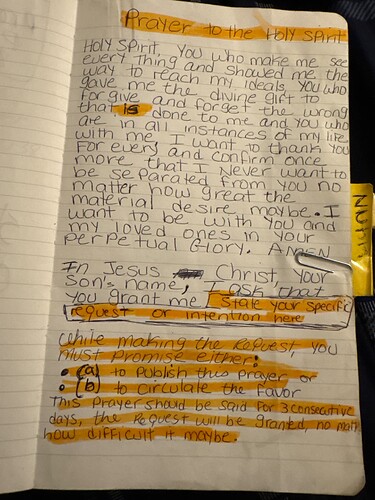 Prayer to the Holy Spirit
Holy Spirit, you who make me see
every thing and showed me the
way to reach my ideals, you who
gave me the divine gift to
forgive and forget the wrong
that is done to me and you who
are in all instances of my life
with me I want to thank you
For every and confirm once
more that I Never want to
be separated from you no
matter how great the
material desire maybe. I
want to be with you and
my loved ones in your
perpetual Glory. Amen
In Jesus Christ, your
Son's name, I ask that
you grant me [State your specific
request or intention here
While making the Request, you
must promise either:
• (a) to Publish this prayer or
• (b) to circulate the Favor
This Prayer should be said For 3 consecutive
days, the Request will be granted, no matt
how difficult it maybe.